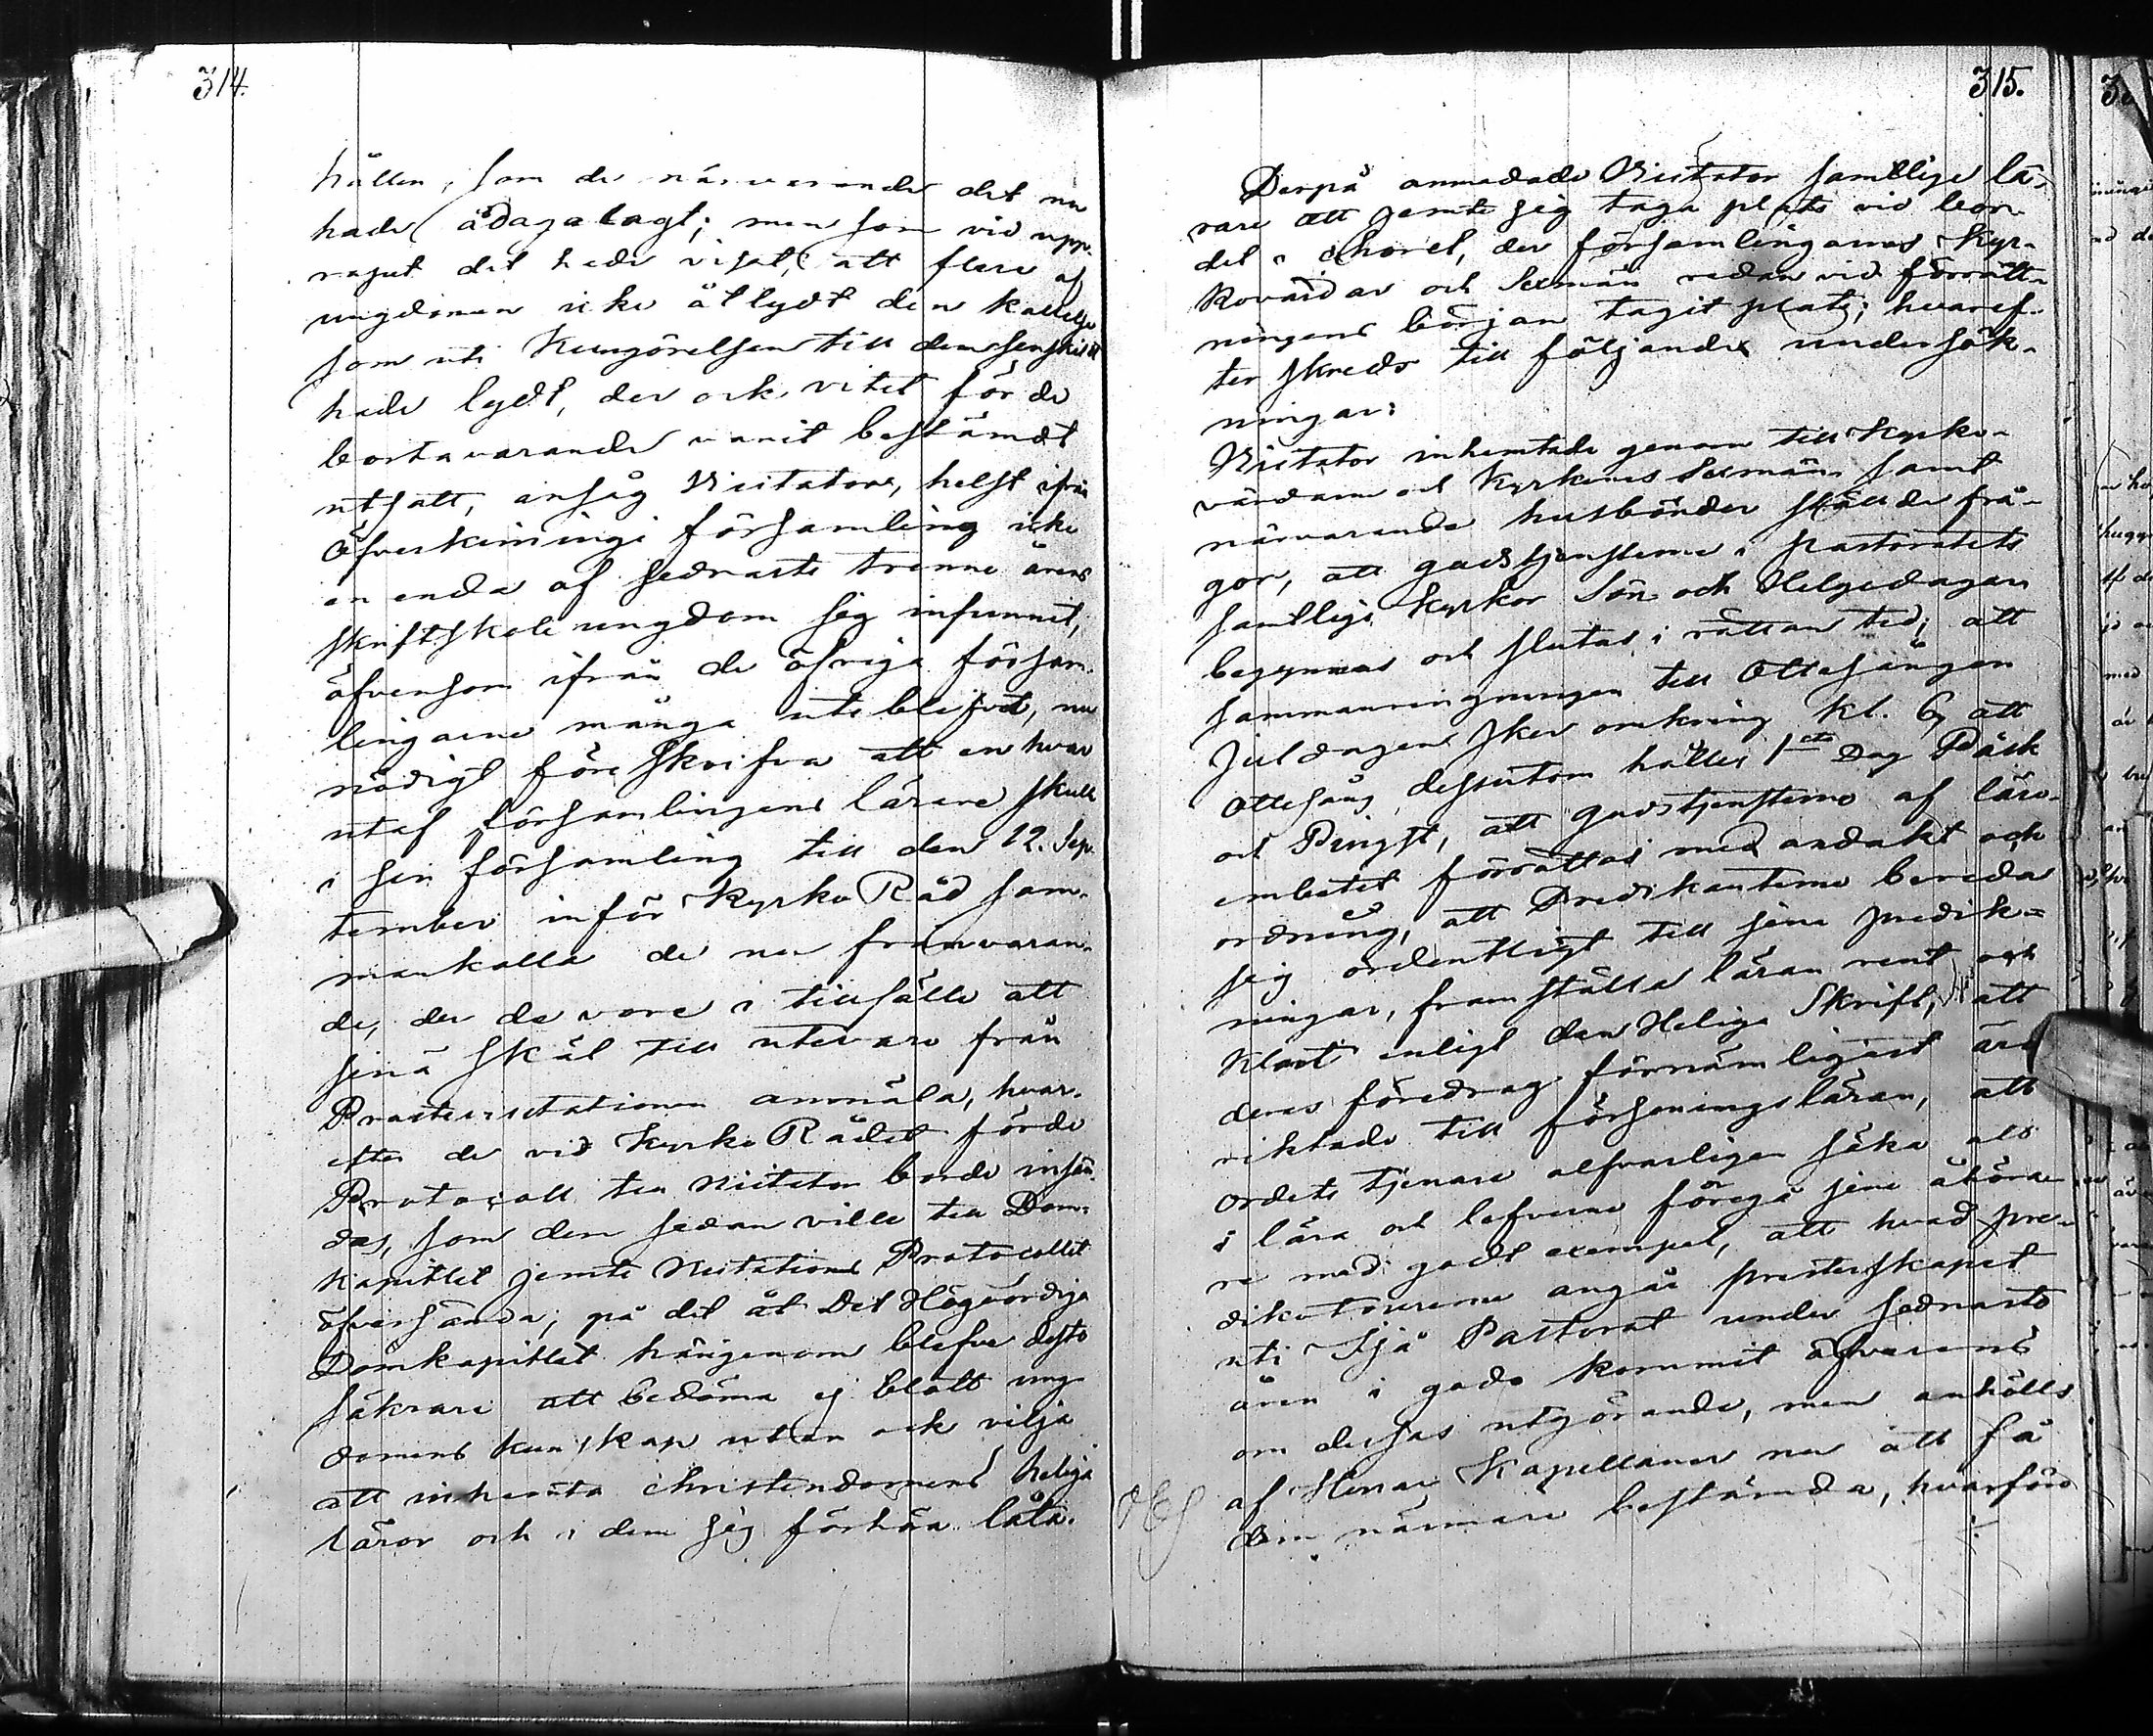 314.
hållen, som de närvarande det nu
hade ådagalagt; men som vid upp-
ropet det hade visat, att flere af
ungdomen icke åtlydt den kallelse
som uti Kungörelsen till dem
hade lydt, der ock vitet för de
bortavarande varit bestämdt
utsatt, ansåg Visitator, helst ifrån
Öfverkiminge församling icke
en enda af sednaste trenne årens
skriftskole ungdom sig infunnit,
äfvensom ifrån de öfriga försam-
lingarne många uteblifvit, nu
nödigt föreskrifva att en hvar
utaf församlingens lärare skulle
i sin församling till den 12. Sep-
tember inför Kyrko Råd sam-
mankalla de nu frånvaran-
de, der de vore i tillfälle att
sina skäl till utevaro från
Prostevisitationen anmäla, hvar-
efter de vid Kyrko Rådet förde
Protocoll till Visitator borde insän-
das, som dem sedan ville till Dom-
kapitlet jemte Visitations Protocollet
öfversända; på det åt Det Högvördige
Domkapitlet härigenom blefve desto
säkrare att bedöma ej blott ung-
domens kunskap utan ock vilja
att inhemta christendomens heliga
läror och i dem sig förhöra låta.
315.
Derpå anmodade Visitator samtlige lä-
rare att jemte sig taga plats vid bor-
det i choret, der församlingarnes Kyr-
kovärdar och Sexmän redan vid förrätt-
ningens början tagit plats; hvaref-
ter skreds till följande undersök-
ningar:
Visitator inhemtade genom till Kyrko-
värdarne och Kyrkornes Sexmän samt
närvarande husbönder stäuide frå-
gor, att gudstjensterne i pastoratets
samtlige kyrkor Sön och Helgedagar
begynnas och slutas i rättan tid; att
sammanringningen till Ottesången
Juldagen sker omkring kl. 6, att
Ottesång dessutom hålles 1sta Dag Påsk
och Pingst, att gudstjensterne af läro-
embetet förrättas med andakt och
ordning, att Predikanterne bereda
sig ordentligt till sine predik-
ningar, framställa läran rent och
klart enligt den Helige Skrift, att
deras föredrag förnämligast äro
riktade till försoningsläran, att
ordets tjenare alfvarligen söka att
i lära och lefverne föregå sine åhöra-
re med godt exempel, att hvad pre-
dikotourerne angår presterskapet
uti Ijå Pastorat under sednaste
åren i godo kommit öfverens
om dessas utgörande, men anhölls
af Herrar Kapellaner nu att få
dem närmare bestämda, hvarföre